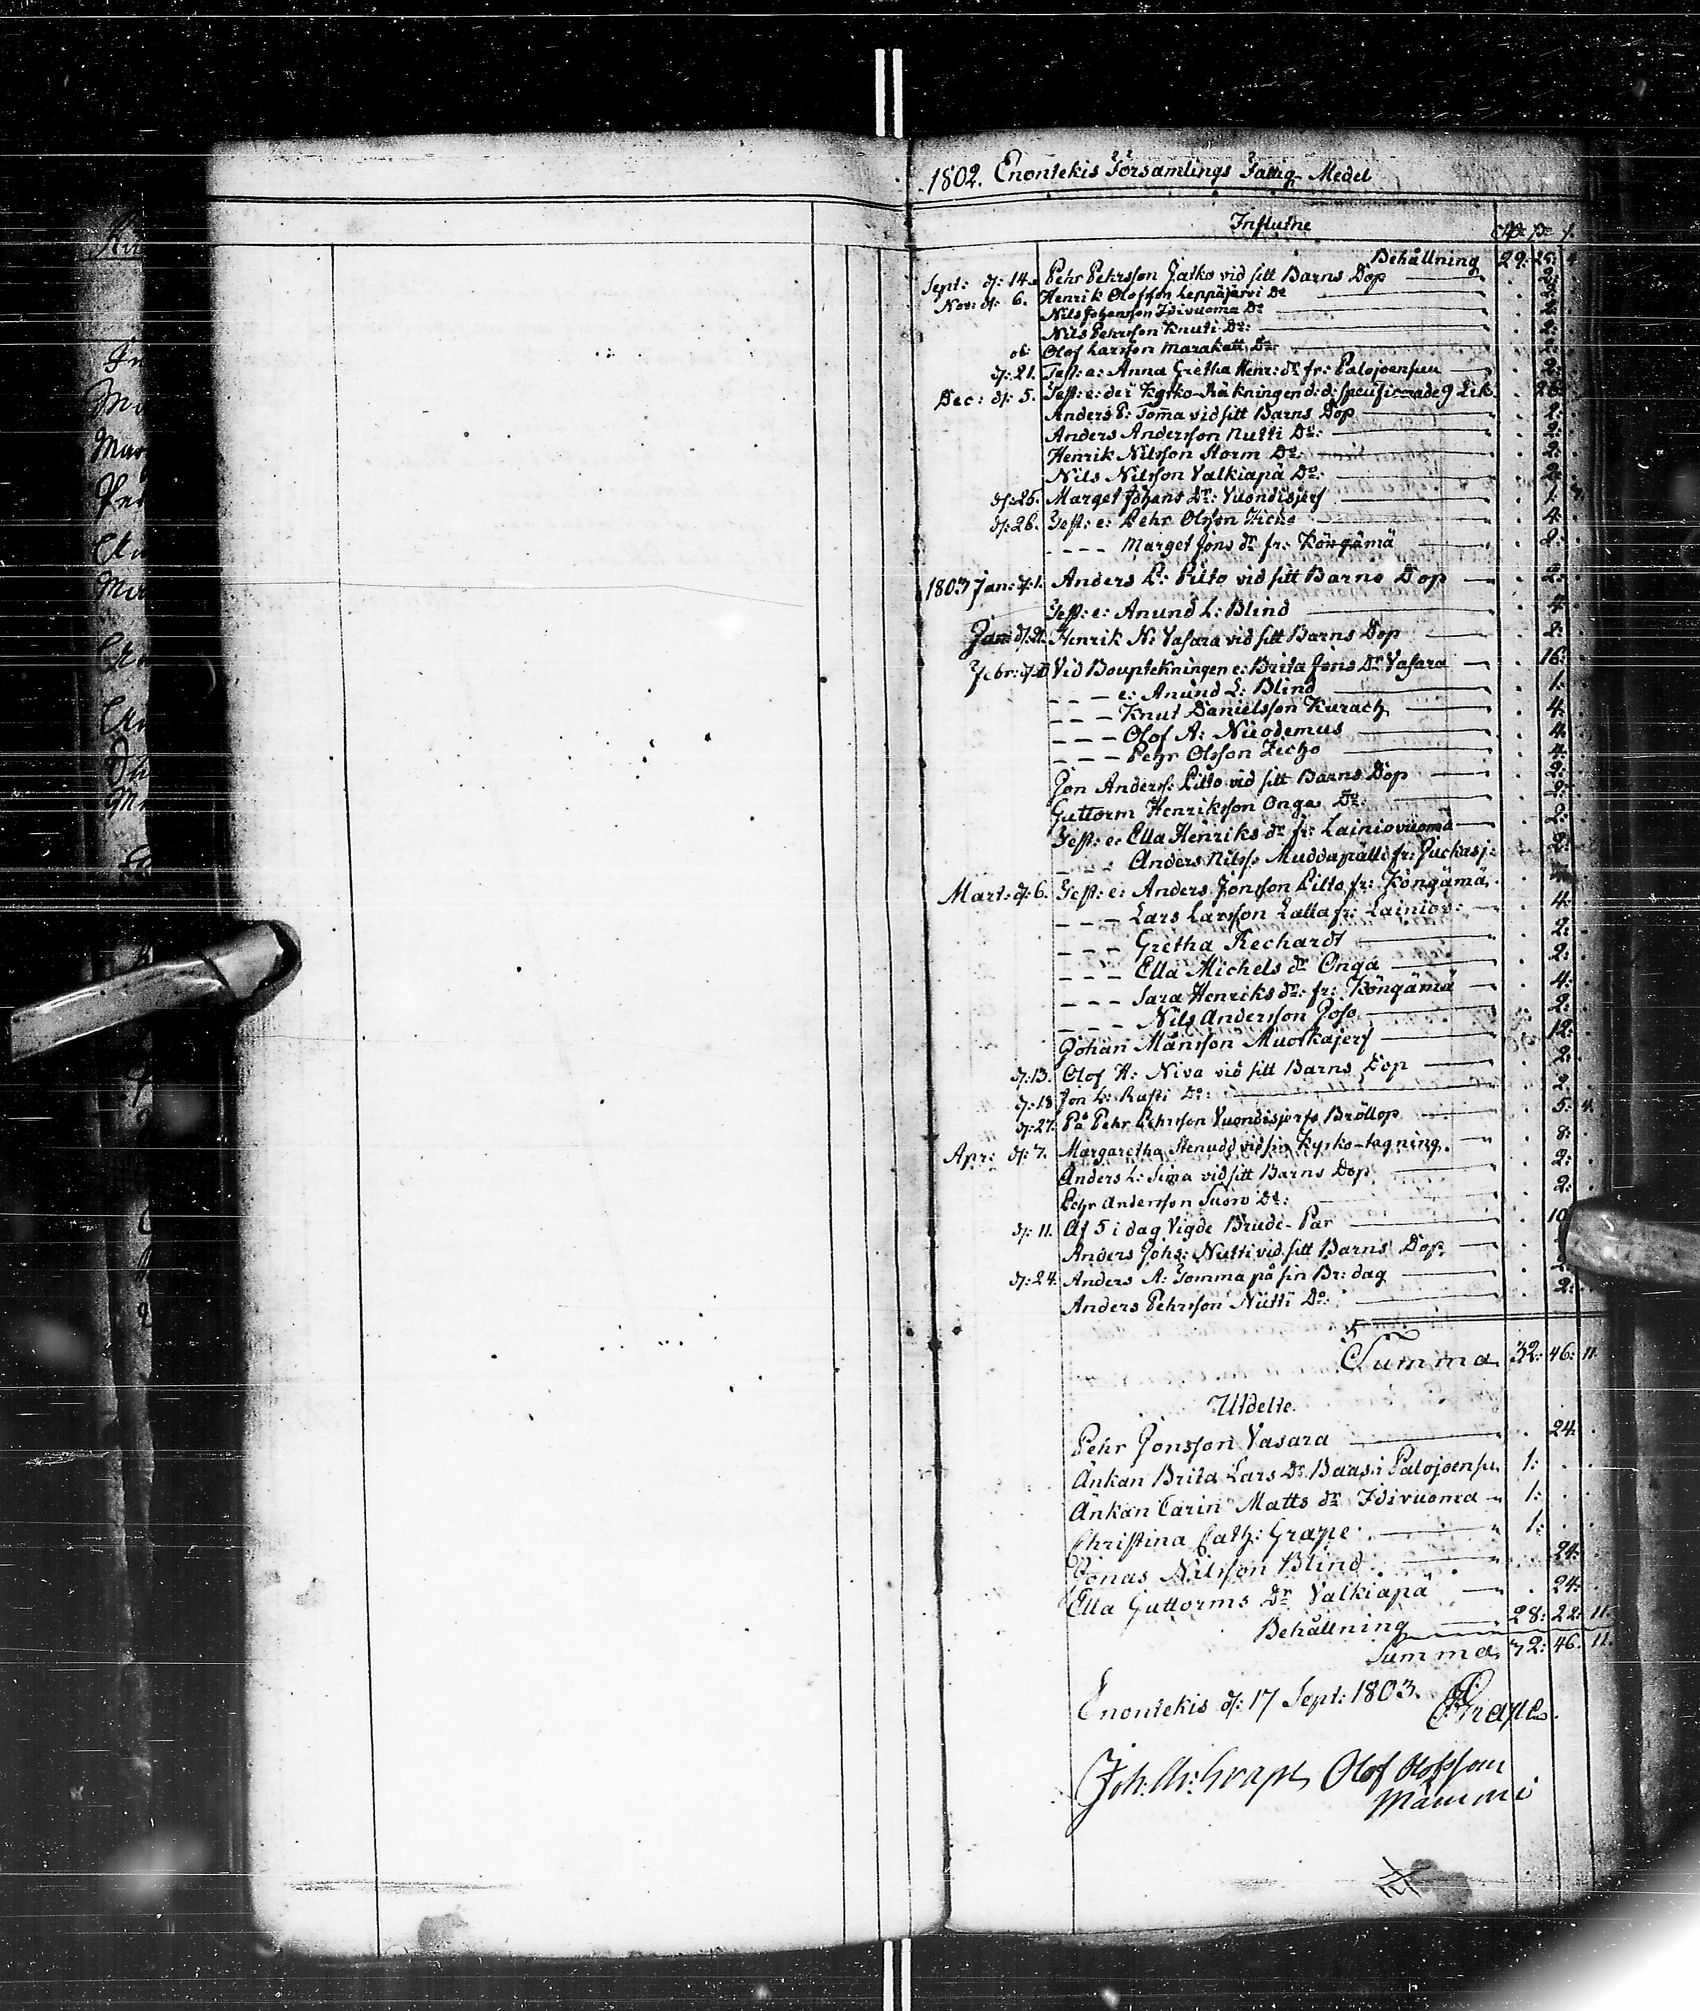 1802. Enontekis Församlings Fattig-Medel
Influtne Rdr ß r.
Behållning 29: 25: 4
Sept: d: 14. Pehr Pehrsson Jatko vid sitt Barns Dop 2:
Nov: d: 6. Henrik Olofsson Leppäjärvi Do 2:
Nils Johansson Idivuoma Do 2:
Nils Pehrsson Knuti Do: 2:
Olof Larsson Marakatt Do: 2:
d: 21. Test: e: Anna Gretha Henr: dr fr: Palojoensuu 2:
Dec: d: 5. Test: e: de i Kyrko-Räkningen d: d: specificerade 9 Lik. 26:
Anders P: Tom̄a vid sitt Barns Dop 2:
Anders Andersson Nutti Do: 2:
Henrik Nilsson Storm Do: 2:
Nils Nilsson Valkiapä Do: 2:
d: 25. Marget Johans Dr: Vuondisjerf 1: 7.
d: 26. Test: e: Pehr Olsson Zicho 4:
- - - - Marget Jons dr fr: Köngämä 2:
1803 Jan: d: 1. Anders P: Pilto vid sitt Barns Dop 2:
Test: e: Anund L: Blind 4:
Jan: d: 21. Henrik N: Vasara vid sitt Barns Dop 2:
Febr: d: Vid Bouptekningen e: Brita Jons Dr Vasara 16:
- - - e: Anund L: Blind 1:
- - - Knut Danielsson Kurach 4:
- - - Olof A: Nicodemus 4:
- - - Pehr Olsson Zicho 4:
Jon Anderss: Pilto vid sitt Barns Dop 2:
Guttorm Henriksson Onga Do: 2:
Test: e: Ella Henriks dr fr: Lainiovuoma 2:
- - - Anders Nilss: Muddapälli fr: Juckasj: 2:
Mart: d: 6. Test: e: Anders Jonsson Pilto fr: Köngämä
- - - Lars Larsson Latta fr: Lainiov: 4:
- - - Gretha Rechardt 2:
- - - Ella Michels dr Onga 2:
- - - Sara Henriks dr: fr: Köngämä 4:
- - - Nils Andersson Joso 2:
Johan Månsson Muotkajerf 12:
d: 13. Olof H: Niva vid sitt Barns Dop 2:
d: 18. Jon L: Rasti Do: 2:
d: 27. På Pehr Pehrsson Vuondisjerfs Bröllop 5: 4.
Apr: d: 7. Margaretha Stenudd vid sin Kyrko-tagning. 8:
Anders L: Sima vid sitt Barns Dop 2:
Pehr Andersson Suorv Do: 2:
d: 11. Af 5 i dag Vigde Brude-Par 10
Anders Johs: Nutti vid sitt Barns Dop.
d: 24. Anders A: Tomma på sin Br: dag 2:
Anders Pehrsson Nutti Do: 2:
Summa 32: 46: 11.
Utdelte.
Pehr Jonsson Vasara 24:
Änkan Brita Lars Dr Baas i Palojoensu 1:
Änkan Carin Matts dr Idivuoma 1:
Christina Cath: Grape 1:
Jonas Nilsson Blind 24:
Ella Guttorms Dr Valkiapä 24:
Behållning 28: 22: 11.
Summa 32: 46: 11.
Enontekis d: 17 Sept: 1803. Grape.
Joh: Grape Olof Olofsson
Mämmi